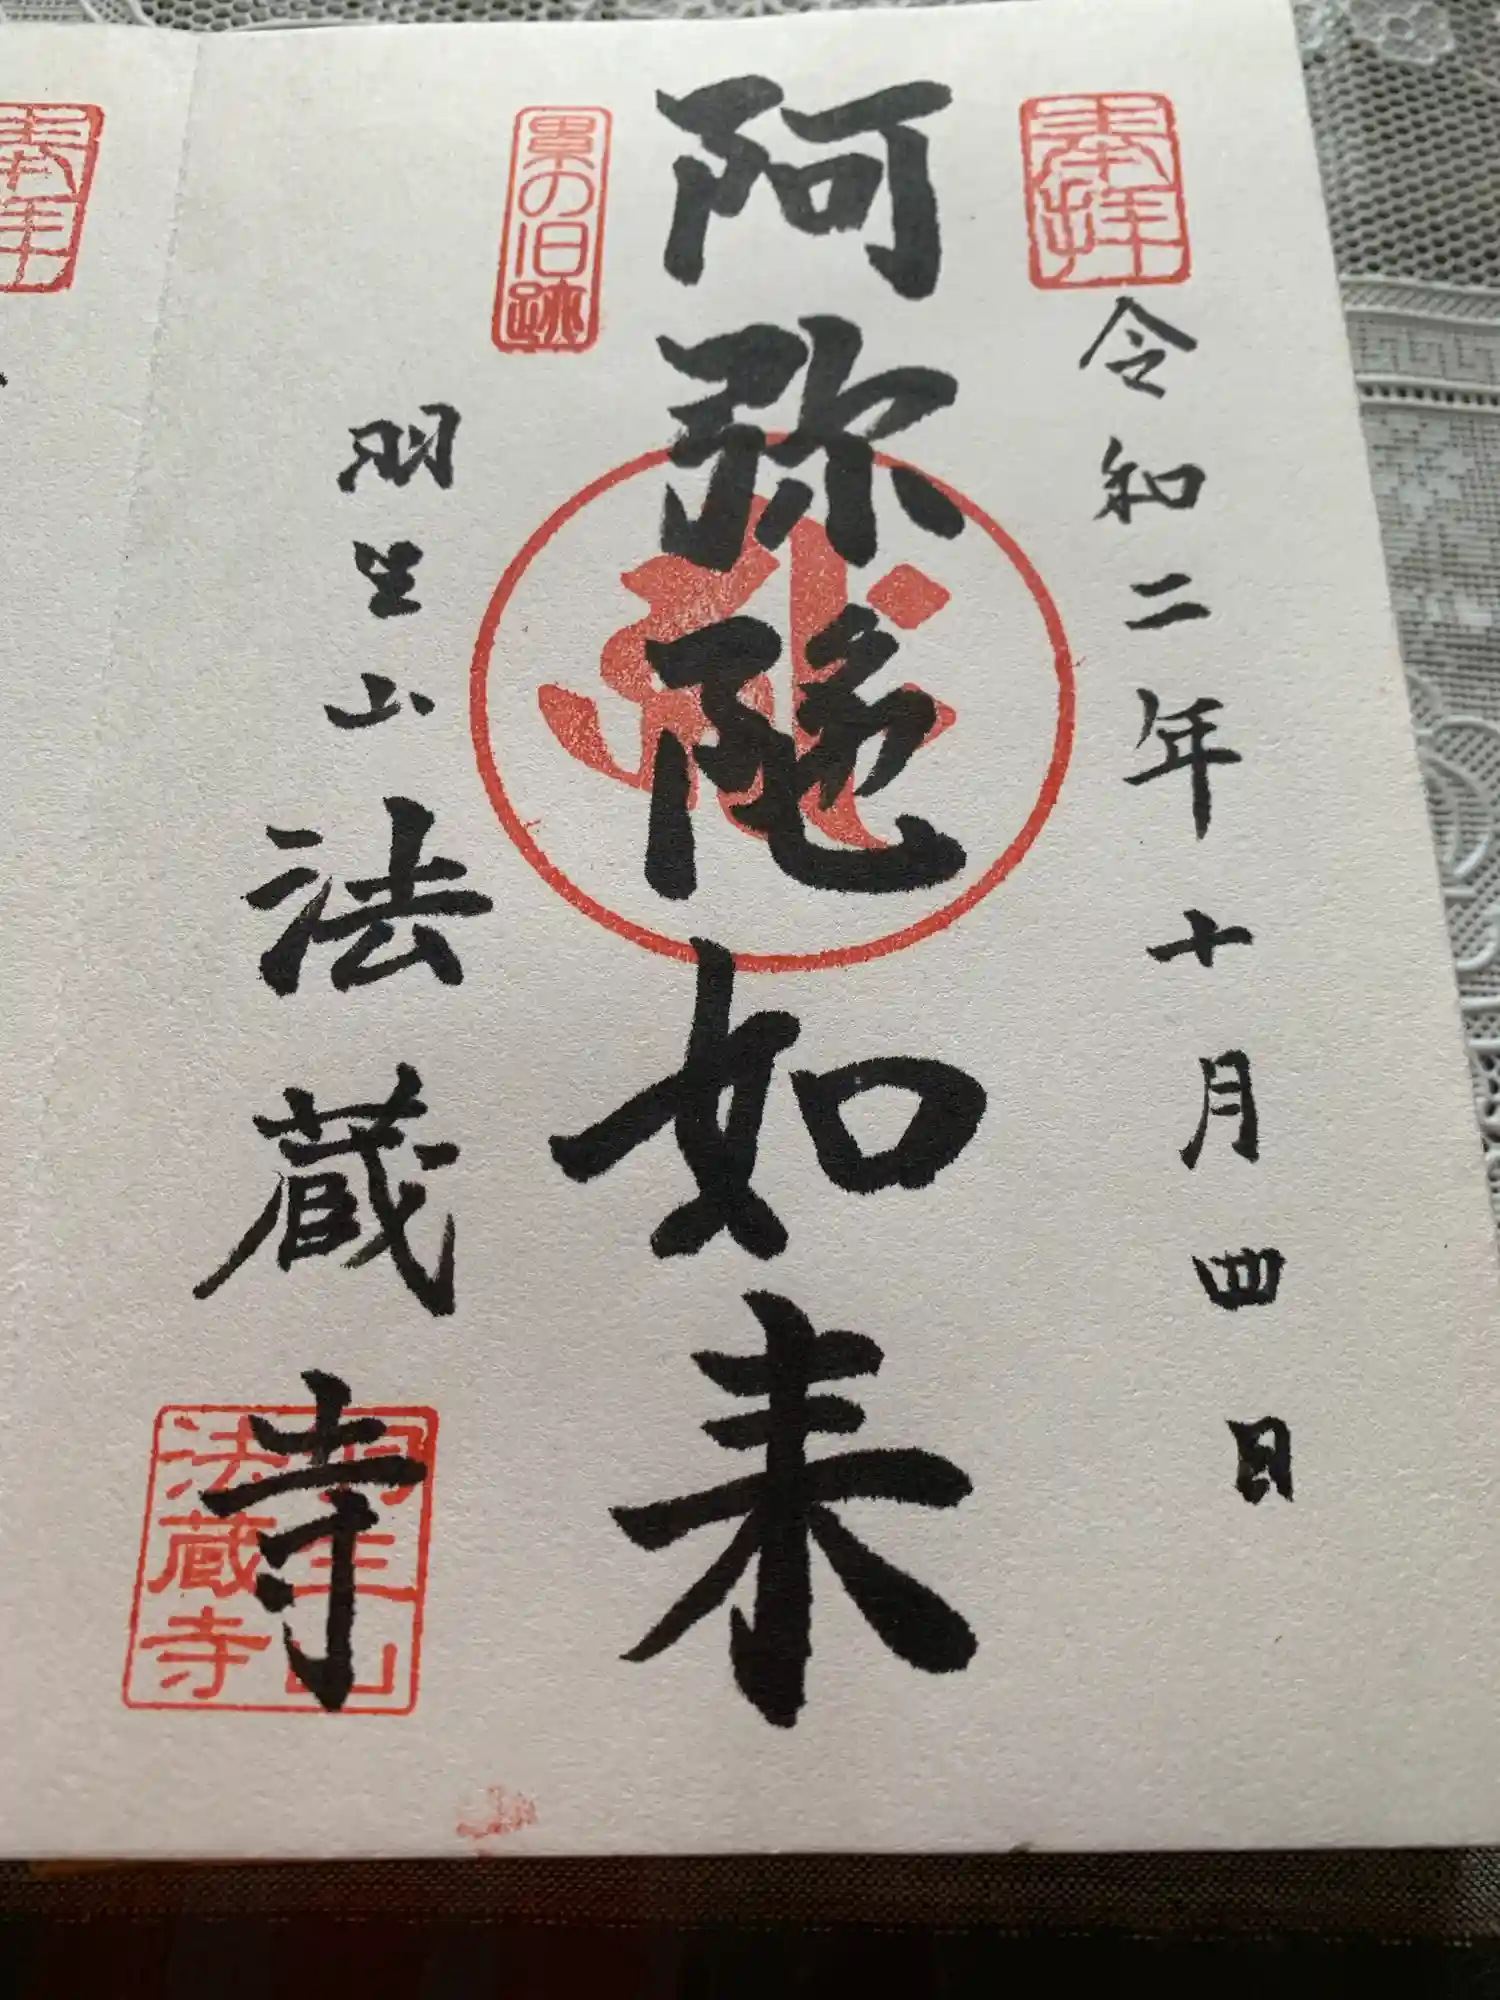 奉拝
令和二年十月四日
阿弥陀如来
累の旧跡
羽生山
法蔵寺
羽生山
法蔵寺
奉拝